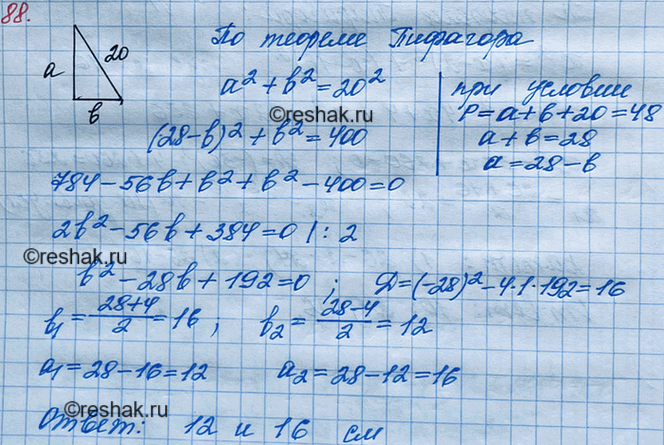 88.
a
20
b
По теореме Пифагора
a² + b² = 20²
при условии
P = a + b + 20 = 48
a + b = 28
a = 28 - b
©reshak.ru
(28 - b)² + b² = 400
784 - 56b + b² + b² - 400 = 0
2b² - 56b + 384 = 0 | : 2
©reshak.ru
b² - 28b + 192 = 0 ; D = (-28)² - 4·1·192 = 16
b₁ = (28+4)/2 = 16 , b₂ = (28-4)/2 = 12
a₁ = 28 - 16 = 12 a₂ = 28 - 12 = 16
©reshak.ru
Ответ: 12 и 16 см